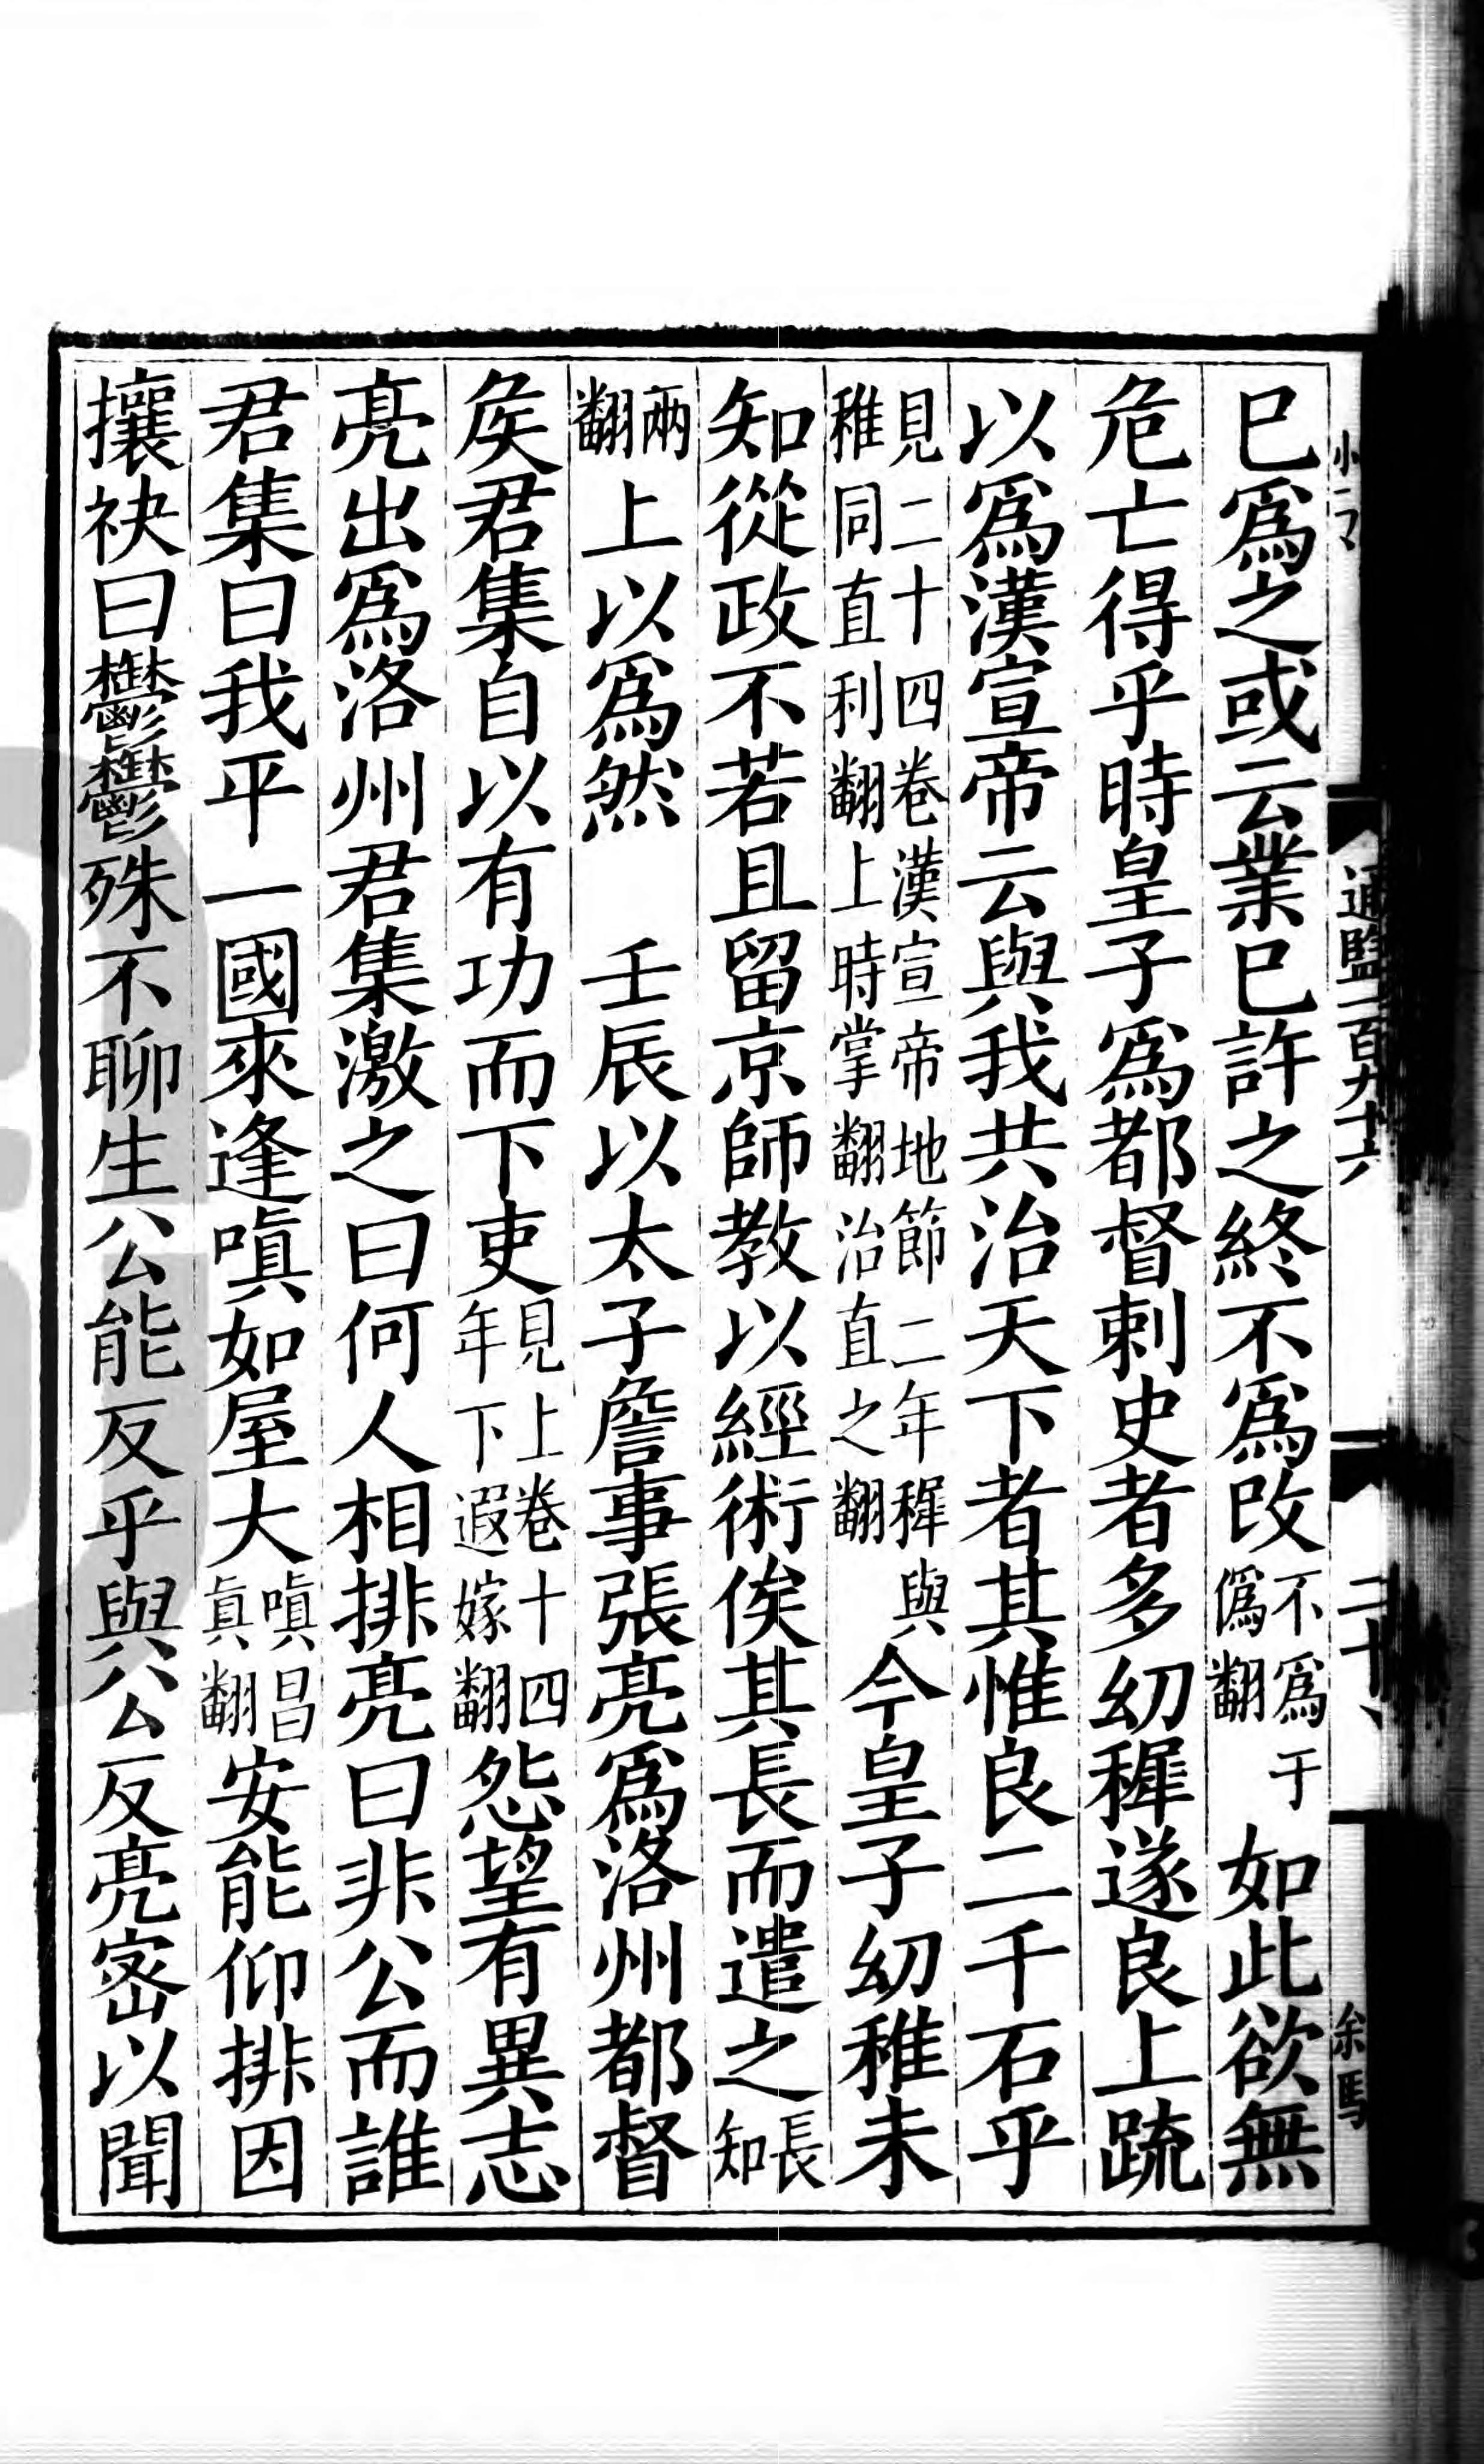 巳爲之或云業巳許之終不爲改不爲于僞翻如此欲無
危亡得乎時皇子爲都督刺史者多幼穉遂良上疏
以爲漢宣帝云與我共治天下者其惟良二千石乎
見二十四卷漢宣帝地節二年穉與稚同直利翻上時掌翻治直之翻今皇子幼稚未
知從政不若且留京師教以經術俟其長而遣之長知
兩翻上以爲然　壬辰以太子詹事張亮爲洛州都督
矦君集自以有功而下吏見上卷十四年下遐嫁翻怨望有異志
亮出爲洛州君集激之曰何人相排亮曰非公而誰
君集曰我平一國來逢嗔如屋大嗔昌真翻安能仰排因
攘袂曰鬱鬱殊不聊生公能反乎與公反亮密以聞
通鑑一百九十六
余